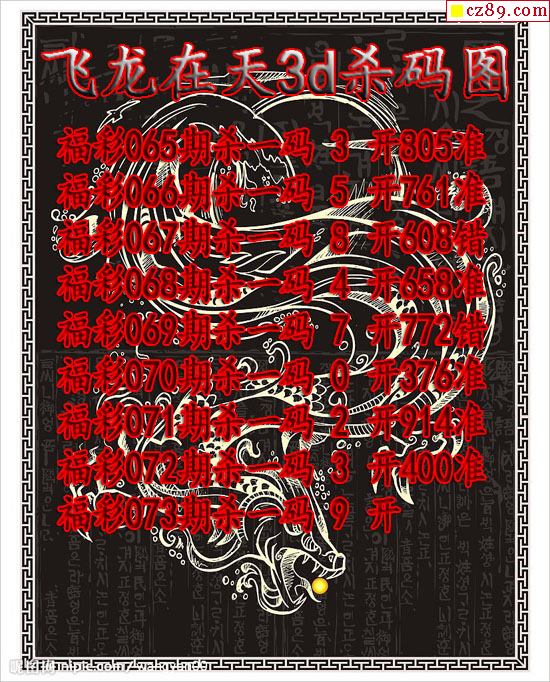 cz89.com
飞龙在天3d杀码图
福彩065期杀一码 3 开805准
福彩066期杀一码 5 开761准
福彩067期杀一码 8 开608错
福彩068期杀一码 4 开658准
福彩069期杀一码 7 开772错
福彩070期杀一码 0 开376准
福彩071期杀一码 2 开914准
福彩072期杀一码 3 开400准
福彩073期杀一码 9 开